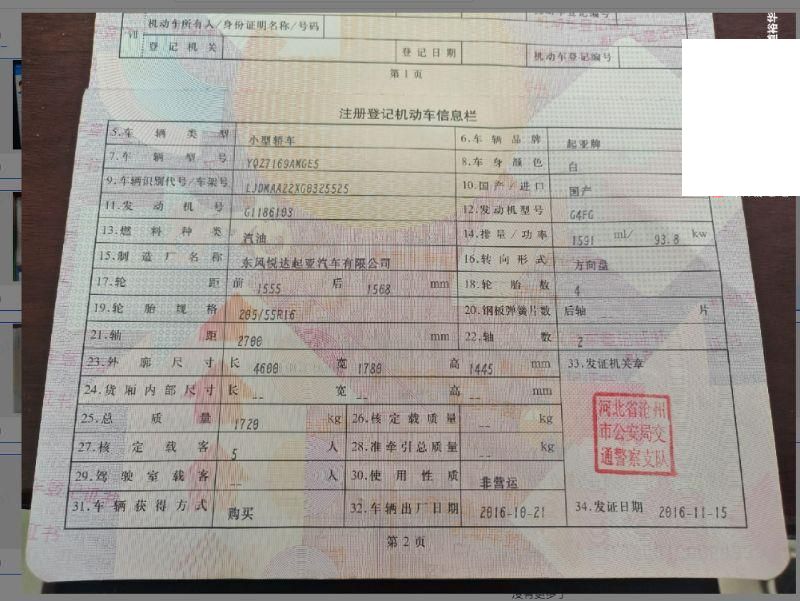 机动车所有人/身份证明名称/号码
Ⅶ
登记机关 登记日期 机动车登记编号
第1页
注册登记机动车信息栏
5.车辆类型 小型轿车 6.车辆品牌 起亚牌
7.车辆型号 YQZ7169AMGE5 8.车身颜色 白
9.车辆识别代号/车架号 LJDMAA22XG0325525 10.国产/进口 国产
11.发动机号 G1186103 12.发动机型号 G4FG
13.燃料种类 汽油 14.排量/功率 1591 ml/ 93.8 kw
15.制造厂名称 东风悦达起亚汽车有限公司 16.转向形式 方向盘
17.轮距 前 1555 后 1568 mm 18.轮胎数 4
19.轮胎规格 205/55R16 20.钢板弹簧片数 后轴 -- 片
21.轴距 2700 mm 22.轴数 2
23.外廓尺寸 长 4600 宽 1780 高 1445 mm 33.发证机关章
24.货厢内部尺寸 长 -- 宽 -- 高 -- mm
25.总质量 1720 kg 26.核定载质量 -- kg
27.核定载客 5 人 28.准牵引总质量 -- kg
29.驾驶室载客 -- 人 30.使用性质 非营运
河北省沧州
市公安局交
通警察支队
31.车辆获得方式 购买 32.车辆出厂日期 2016-10-21 34.发证日期 2016-11-15
第2页